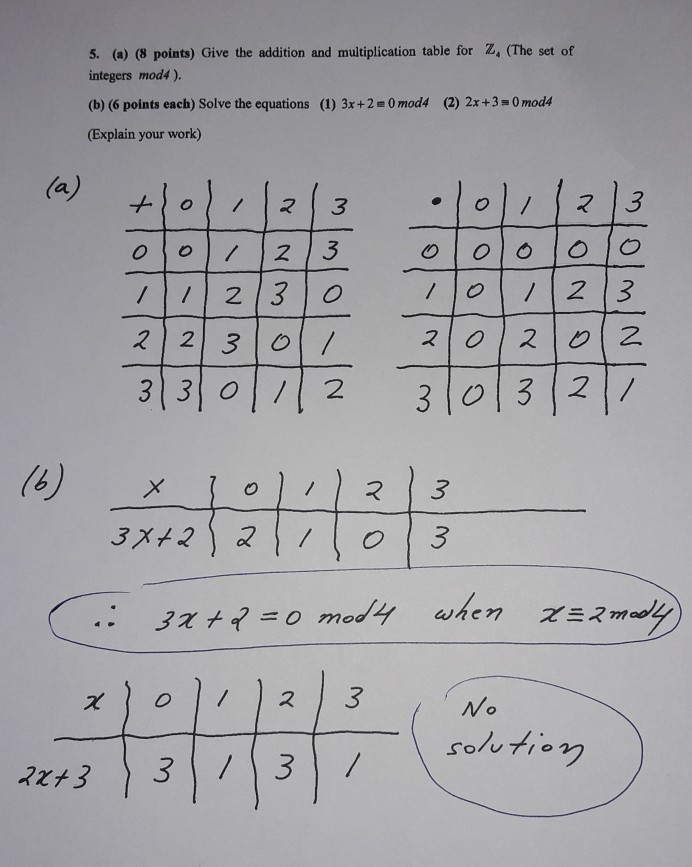 5. (a) (8 points) Give the addition and multiplication table for ℤ₄ (The set of
integers mod4 ).
(b) (6 points each) Solve the equations (1) 3x+2≡0 mod4 (2) 2x+3≡0 mod4
(Explain your work)
(a)
+ 0 1 2 3
0 0 1 2 3
1 1 2 3 0
2 2 3 0 1
3 3 0 1 2
• 0 1 2 3
0 0 0 0 0
1 0 1 2 3
2 0 2 0 2
3 0 3 2 1
(b)
x 0 1 2 3
3x+2 2 1 0 3
∴ 3x+2=0 mod4 when x≡2mod4
x 0 1 2 3
2x+3 3 1 3 1
No
solution